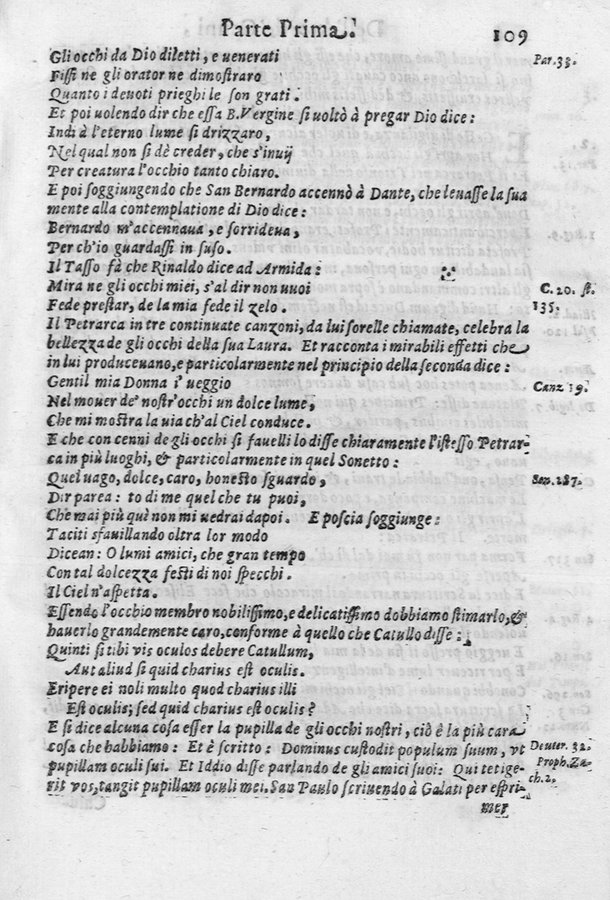 Parte Prima. 109
Gli occhi da Dio diletti, e uenerati Par. 33.
Fissi ne gli orator ne dimostraro
Quanto i deuoti prieghi le son grati.
Et poi uolendo dir che essa B. Vergine si uoltò à pregar Dio dice:
Indi à l'eterno lume si drizzaro,
Nel qual non si dè creder, che s'inuij
Per creatura l'occhio tanto chiaro.
E poi soggiungendo che San Bernardo accennò à Dante, che leuasse la sua
mente alla contemplatione di Dio dice:
Bernardo m'accennaua, e sorrideua,
Per ch'io guardassi in suso.
Il Tasso fà che Rinaldo dice ad Armida:
Mira ne gli occhi miei, s'al dir non uuoi C. 20. st.
Fede prestar, de la mia fede il zelo. 135.
Il Petrarca in tre continuate canzoni, da lui sorelle chiamate, celebra la
bellezza de gli occhi della sua Laura. Et racconta i mirabili effetti che
in lui produceuano, e particolarmente nel principio della seconda dice:
Gentil mia Donna i' ueggio Canz 19.
Nel mouer de' nostr'occhi un dolce lume,
Che mi mostra la uia ch'al Ciel conduce.
E che con cenni de gli occhi si fauelli lo disse chiaramente l'istesso Petrar-
ca in più luoghi, & particolarmente in quel Sonetto:
Quel uago, dolce, caro, honesto sguardo, Son. 287.
Dir parea: to di me quel che tu puoi,
Che mai più quì non mi uedrai dapoi. E poscia soggiunge:
Taciti sfauillando oltra lor modo
Dicean: O lumi amici, che gran tempo
Con tal dolcezza festi di noi specchi.
Il Ciel n'aspetta.
Essendo l'occhio membro nobilissimo, e delicatissimo dobbiamo stimarlo, &
hauerlo grandemente caro, conforme à quello che Catullo disse:
Quinti si tibi vis oculos debere Catullum,
Aut aliud si quid charius est oculis.
Eripere ei noli multo quod charius illi
Est oculis; sed quid charius est oculis?
E si dice alcuna cosa esser la pupilla de gli occhi nostri, ciò è la più cara
cosa che habbiamo: Et è scritto: Dominus custodit populum suum, vt Deuter. 32.
pupillam oculi sui. Et Iddio disse parlando de gli amici suoi: Qui tetige- Proph. Za-
rit vos, tangit pupillam oculi mei. San Paulo scriuendo à Galati per espri- ch. 2.
mer